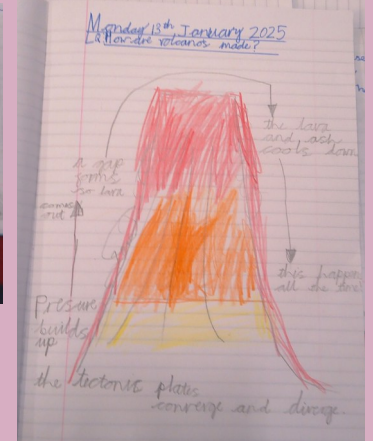 Monday 13th, January 2025
LQ How are volcanos made?
the lava
and ash
cools down
a gap
forms
so lava
comes
out
this happen
all the time
Presure
builds
up
the tectonic plates
converge and diverge